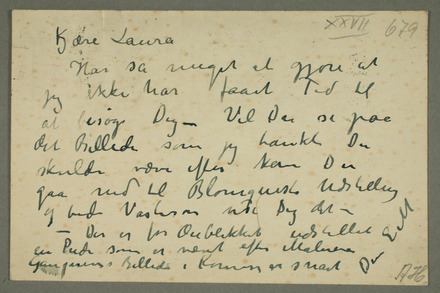 XXVII 679
Kjære Laura
Har så meget at gjøre at
jeg ikke har faaet Tid til
at besøge Dig – Vil Du se paa
det Billede som jeg tænkte Du
skulde være efter kan Du
gaa ned til Blomquists Udstilling
og bede Vaktersen vise Dig det –
– Der er for Øieblikket udstillet
en Pude som er vævet efter Malerier
Billede i Kommer snart
Din E M